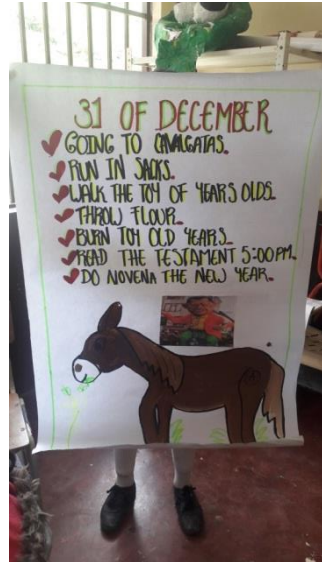 31 OF DECEMBER
GOING TO CAVALGATAS.
RUN IN SACKS.
WALK THE TOY OF YEARS OLDS.
THROW FLOUR.
BURN TOY OLD YEARS.
READ THE TESTAMENT 5:00 PM.
DO NOVENA THE NEW YEAR.